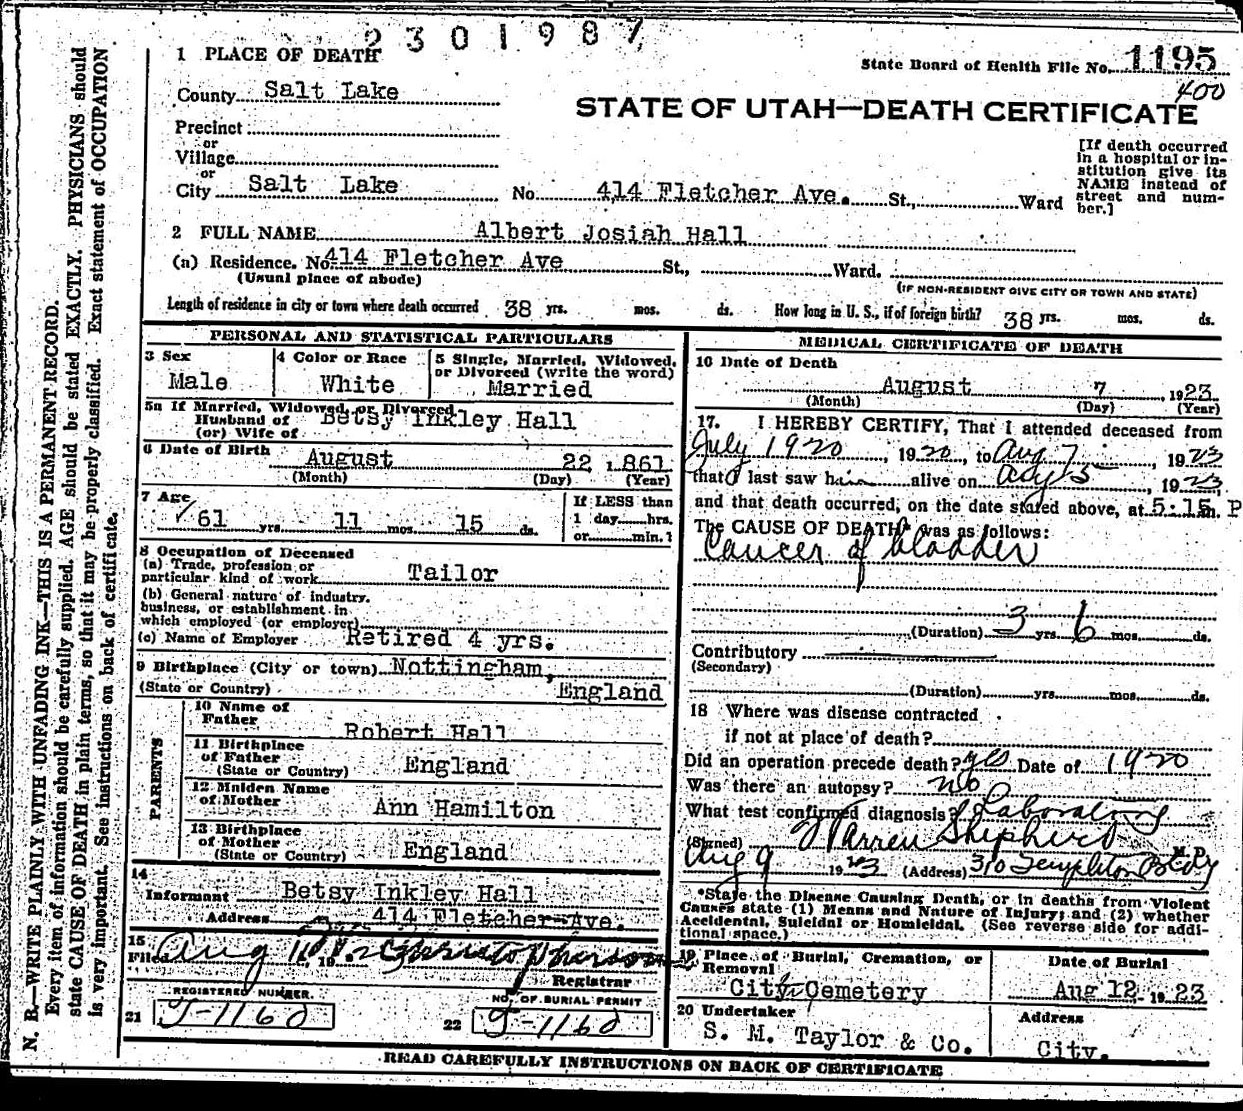 2301987
1 PLACE OF DEATH
State Board of Health File No. 1195
400
County Salt Lake
STATE OF UTAH—DEATH CERTIFICATE
Precinct
or
Village
or
City Salt Lake No. 414 Fletcher Ave. St., Ward
[If death occurred
in a hospital or in-
stitution give its
NAME instead of
street and num-
ber.]
2 FULL NAME Albert Josiah Hall
(a) Residence. No. 414 Fletcher Ave St., Ward.
(Usual place of abode) (IF NON-RESIDENT GIVE CITY OR TOWN AND STATE)
Length of residence in city or town where death occurred 38 yrs. mos. ds. How long in U. S., if of foreign birth? 38 yrs. mos. ds.
PERSONAL AND STATISTICAL PARTICULARS
3 Sex
Male
4 Color or Race
White
5 Single, Married, Widowed,
or Divorced (write the word)
Married
5a If Married, Widowed, or Divorced
Husband of Betsy Inkley Hall
(or) Wife of
6 Date of Birth August 22, 1861
(Month) (Day) (Year)
7 Age
61 yrs 11 mos. 15 ds.
If LESS than
1 day hrs.
or min.?
8 Occupation of Deceased
(a) Trade, profession or
particular kind of work Tailor
(b) General nature of industry,
business, or establishment in
which employed (or employer)
(c) Name of Employer Retired 4 yrs.
9 Birthplace (City or town) Nottingham,
(State or Country) England
PARENTS
10 Name of
Father Robert Hall
11 Birthplace
of Father England
(State or Country)
12 Maiden Name
of Mother Ann Hamilton
13 Birthplace
of Mother England
(State or Country)
14
Informant Betsy Inkley Hall
Address 414 Fletcher Ave.
15
Filed Aug 11 19
Registrar
REGISTERED NUMBER.
21 T-1160
NO. OF BURIAL PERMIT
22 T-1160
MEDICAL CERTIFICATE OF DEATH
16 Date of Death
August 7, 1923
(Month) (Day) (Year)
17. I HEREBY CERTIFY, That I attended deceased from
July 1920, 1920, to Aug 7, 1923
that I last saw him alive on Aug 5, 1923,
and that death occurred, on the date stated above, at 5:15 m. P
The CAUSE OF DEATH* was as follows:
Cancer of bladder
(Duration) 3 yrs 6 mos. ds.
Contributory
(Secondary)
(Duration) yrs. mos. ds.
18 Where was disease contracted
if not at place of death?
Did an operation precede death? yes Date of 1920
Was there an autopsy? no
What test confirmed diagnosis? Laboratory
(Signed) Warren Shepherd M.D.
Aug 9 1923 (Address) 310 Templeton B City
*State the Disease Causing Death, or in deaths from Violent
Causes state (1) Means and Nature of Injury; and (2) whether
Accidental, Suicidal or Homicidal. (See reverse side for addi-
tional space.)
19 Place of Burial, Cremation, or
Removal
City Cemetery
Date of Burial
Aug 12 1923
20 Undertaker
S. M. Taylor & Co.
Address
City.
READ CAREFULLY INSTRUCTIONS ON BACK OF CERTIFICATE
N. B.—WRITE PLAINLY WITH UNFADING INK—THIS IS A PERMANENT RECORD.
Every item of information should be carefully supplied. AGE should be stated EXACTLY. PHYSICIANS should
state CAUSE OF DEATH in plain terms, so that it may be properly classified. Exact statement of OCCUPATION
is very important. See instructions on back of certificate.